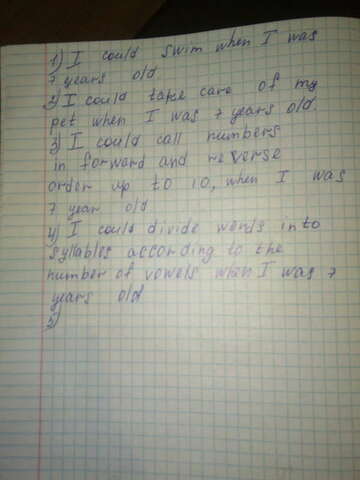 1) I could swim when I was
7 years old
2) I could take care of my
pet when I was 7 years old.
3) I could call numbers
in forward and reverse
order up to 10, when I was
7 year old
4) I could divide words into
syllables according to the
number of vowels when I was 7
years old
5)